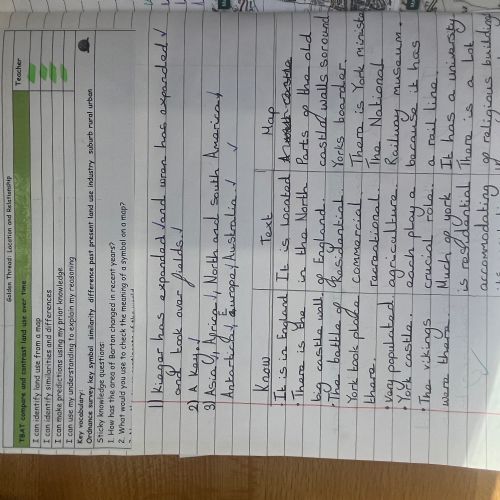 Golden Thread: Location and Relationship
TBAT compare and contrast land use over time
Teacher
I can identify land use from a map
I can identify similarities and differences
I can make predictions using my prior knowledge
I can use my understanding to explain my reasoning
Key vocabulary:
Ordnance survey key symbol similarity difference past present land use industry suburb rural urban
Sticky knowledge questions:
1. How has the area of Barton changed in recent years?
2. What would you use to check the meaning of a symbol on a map?
1) has expanded and wren has expanded
and took over fields.
2) A key.
3) Asia, Africa, North and South America,
Antarctica, Europe, Australia.
Know
It is in England
There is the
big castle wall
The battle of
York took place
there
Very populated
York castle.
The vikings
were there
Text
It is Located
in the North
of England.
Residential,
commercial
recreational.
agriculture.
each play a
crucial role.
Much of york
is residential
accommodating
Map
Parts of the old
castle walls soround
Yorks boarder.
There is York minister
The National
Railway museum.
because it has
a rail line.
It has a university
There is a lot
of religious building